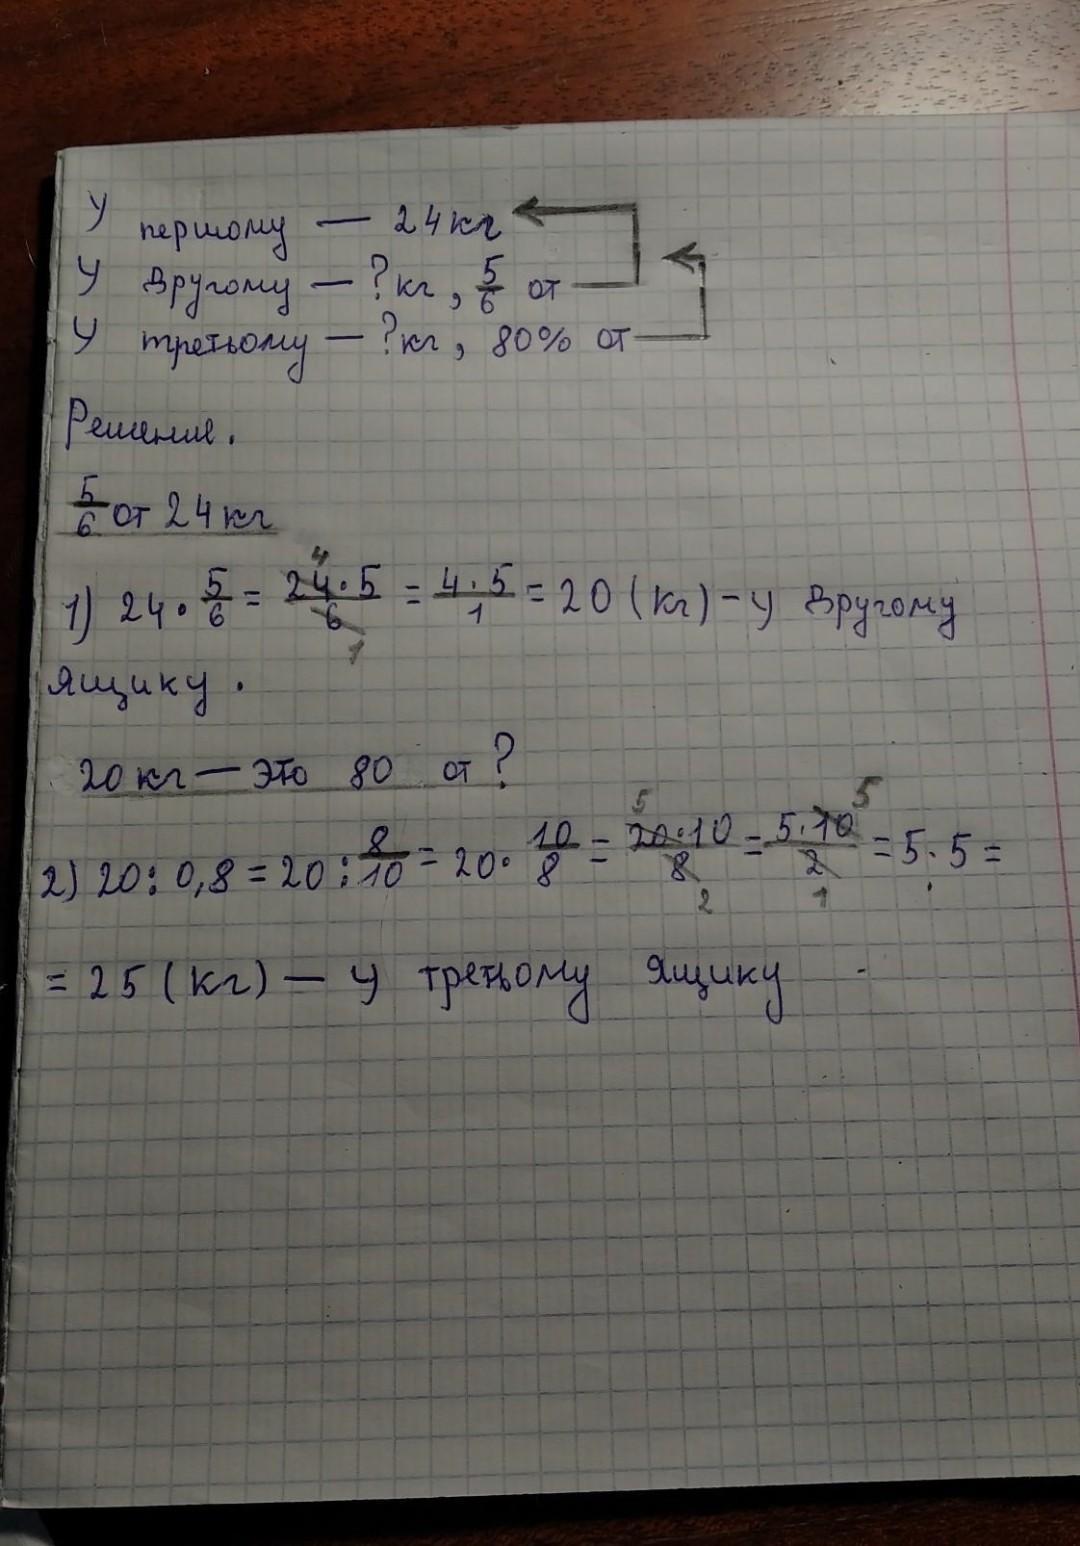 У першому — 24кг
У другому — ?кг, 5/6 от
У третьому — ?кг, 80% от
Решение.
5/6 от 24кг
1) 24 · 5/6 = 24·5/6 = 4·5/1 = 20 (кг) – у другому
4 1
ящику.
20кг — это 80 от ?
2) 20 : 0,8 = 20 : 8/10 = 20 · 10/8 = 20·10/8 = 5·10/2 = 5·5 =
5 2 5 1
= 25 (кг) — у третьому ящику